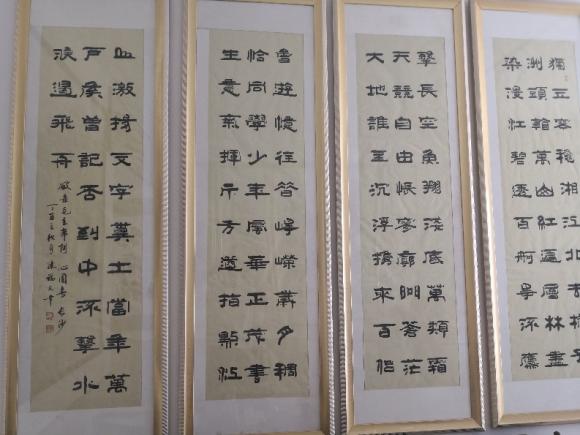 獨立寒穐湘江北去橘子
洲頭看萬山紅遍層林盡
染漫江碧透百舸爭流鷹
擊長空魚翔淺底萬類霜
天競自由悵寥廓問蒼茫
大地誰主沉浮攜來百侶
曾遊憶往昔崢嶸歲月稠
恰同學少年風華正茂書
生意氣揮斥方遒指點江
山激揚文字糞土當年萬
戶侯曾記否到中流擊水
浪遏飛舟
敬录毛主席詞 沁園春 长沙
丁酉之秋月